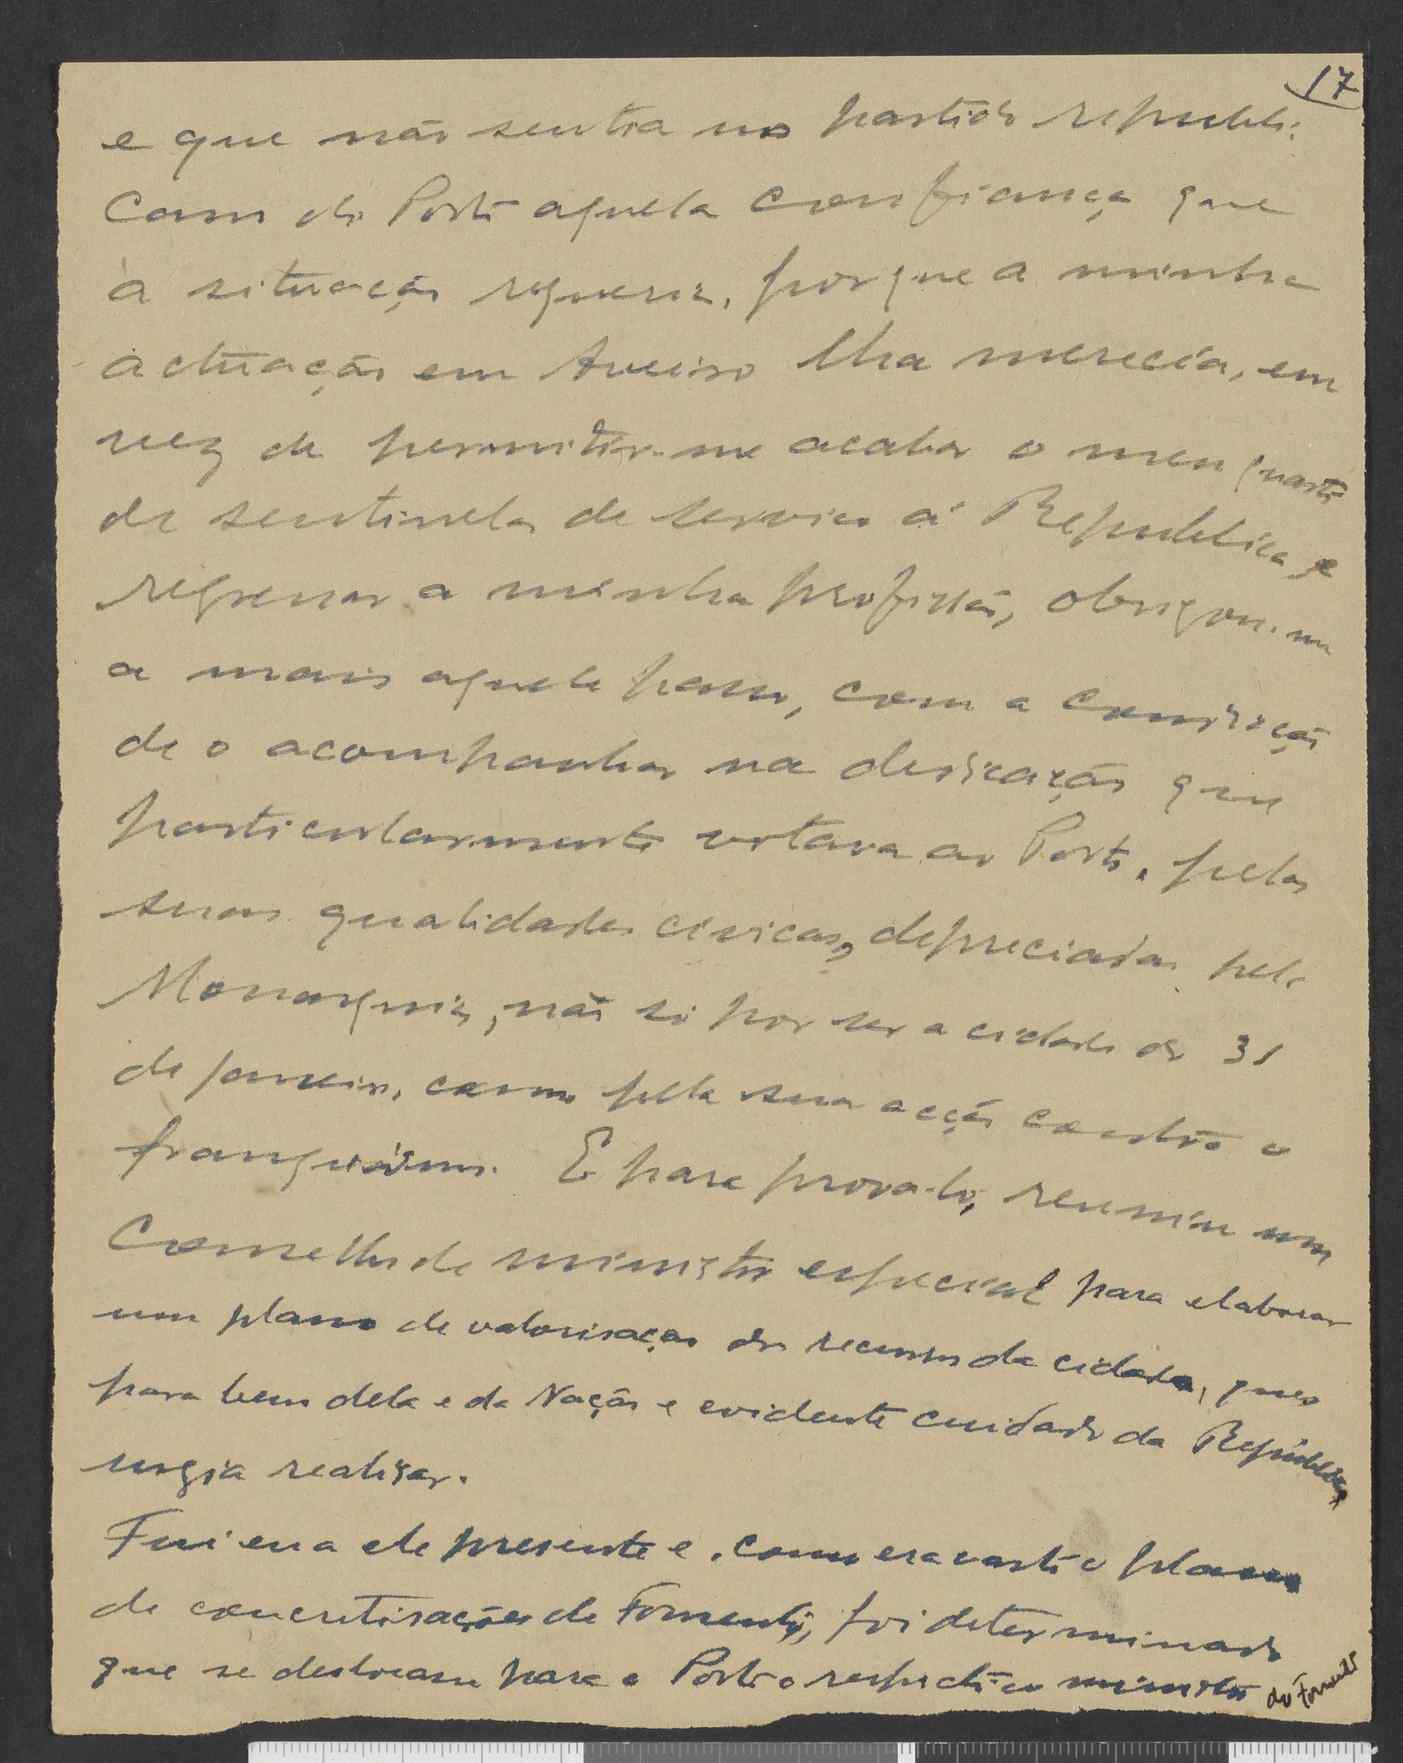 17
e que não sentia no partido republi-
cano do Porto aquela confiança que
a situação requeria, porque a minha
actuação em Aveiro lha merecia, em
vez de permitir-me acabar o meu quarto
de sentinela de serviço á Republica e
regressar a minha profissão, obrigou-me
a mais aquele passo, com a condição
de o acompanhar na dedicação que
particularmente votava ao Porto, pelas
suas qualidades civicas, depreciadas pela
Monarquia, não só por ser a cidade do 31
de janeiro, como pela sua acção contra o
franquismo. E para prova-lo, reuniu um
Conselho de ministros especial para elaborar
um plano de valorisação dos recursos da cidade, que
para bem dela e da Nação e evidente cuidado da República
urgia realizar.
Fui eu a ele presente e, como era vasto o plano
de concretisações de Fomento, foi determinado
que se deslocasse para o Porto o respectivo ministro do Fomento